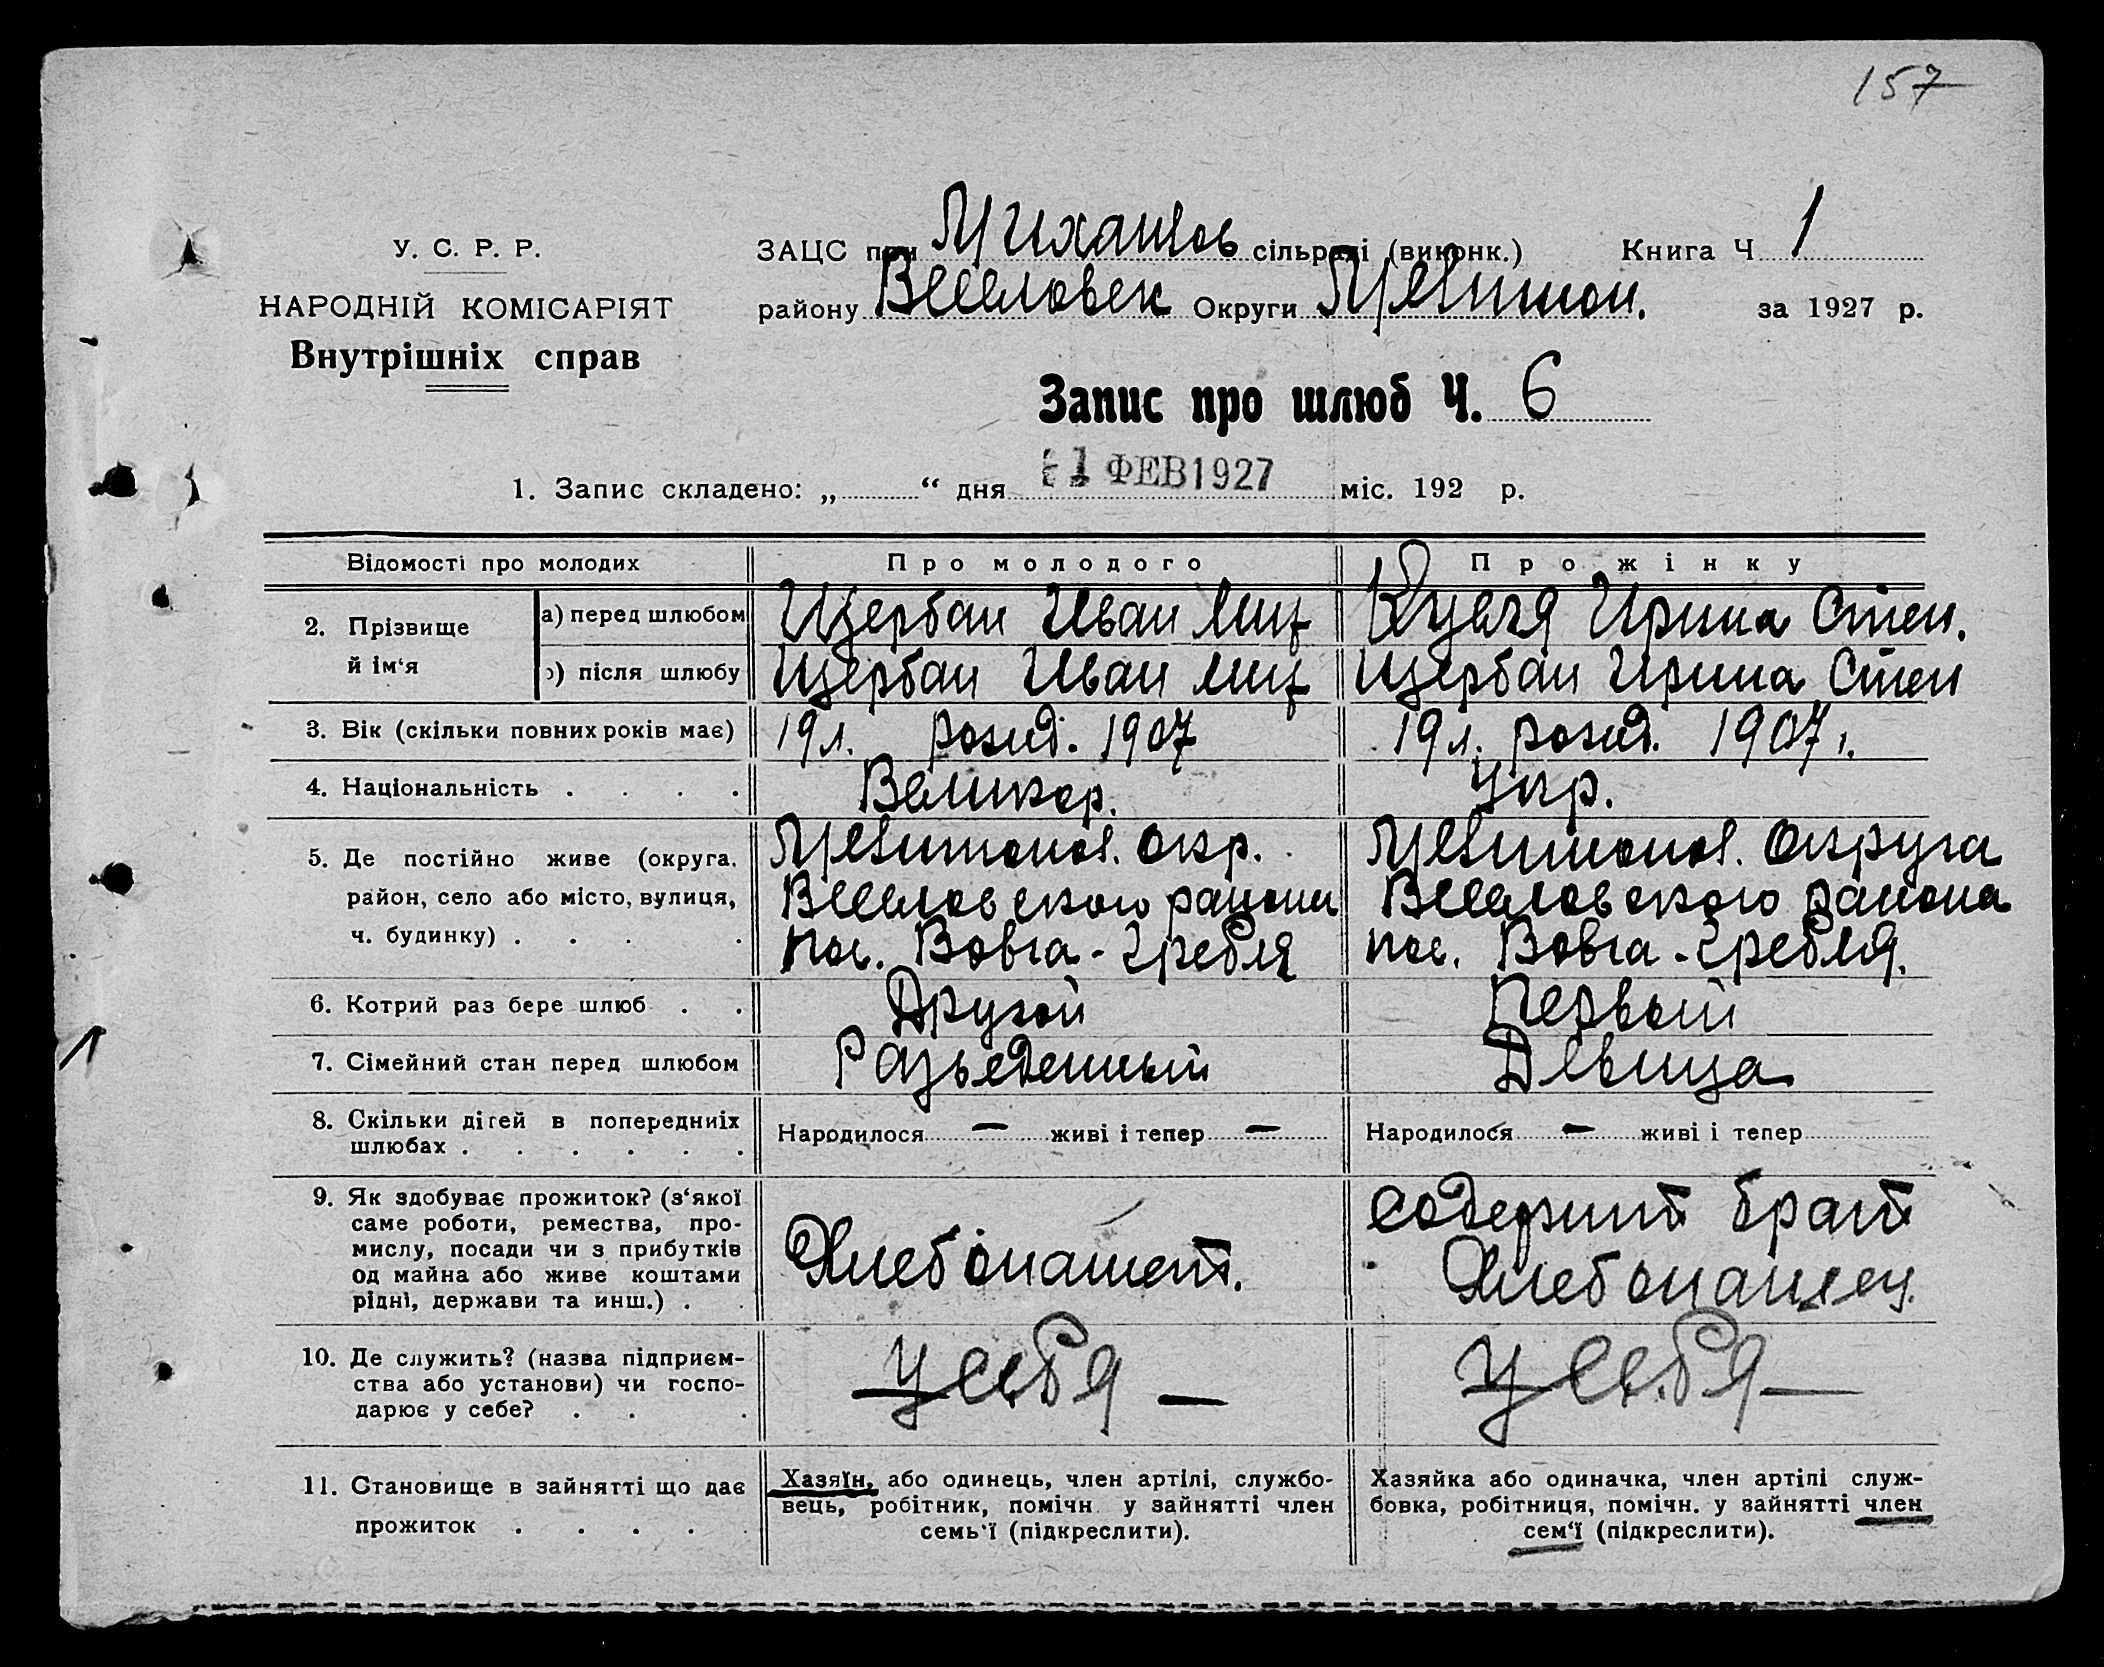 157
У. С. Р. Р.
НАРОДНІЙ КОМІСАРІЯТ
Внутрішніх справ
ЗАЦС при Михайлов сільраді (виконк.) Книга Ч 1
району Веселовск Округи за 1927 р.
Запис про шлюб Ч. 6
1. Запис складено: „ “ дня 1 ФЕВ 1927 міс. 192 р.
Відомості про молодих Про молодого Про жінку
2. Прізвище й ім‘я
а) перед шлюбом Щербан Иван Мит Ирина Степ.
б) після шлюбу Щербан Иван Мит Щербан Ирина Степ
3. Вік (скільки повних років має) 19 л. рожд. 1907 19 л. рожд. 1907 г.
4. Національність . . . . Великор. Укр.
5. Де постійно живе (округа, район, село або місто, вулиця, ч. будинку) . . . .
окр.
Веселовского района
пос. Вовча-Гребля
Округа
Веселовского района
пос. Вовча-Гребля.
6. Котрий раз бере шлюб . . Другой Первый
7. Сімейний стан перед шлюбом Разведенный Девица
8. Скільки дітей в попередниіх
шлюбах . . . . . .
Народилося — живі і тепер — Народилося — живі і тепер
9. Як здобуває прожиток? (з‘якої
саме роботи, ремества, про-
мислу, посади чи з прибутків
од майна або живе коштами
рідні, держави та инш.) . .
Хлебопашест.
содержит брат
Хлебопашец.
10. Де служить? (назва підприєм-
ства або установи) чи госпо-
дарює у себе? . . .
у себя —
у себя —
11. Становище в зайнятті що дає
прожиток . . . . .
Хазяїн, або одинець, член артілі, службо-
вець, робітник, помічн. у зайнятті член
семь‘ї (підкреслити).
Хазяйка або одиначка, член артілі служ-
бовка, робітниця, помічн. у зайнятті член
сем‘ї (підкреслити).